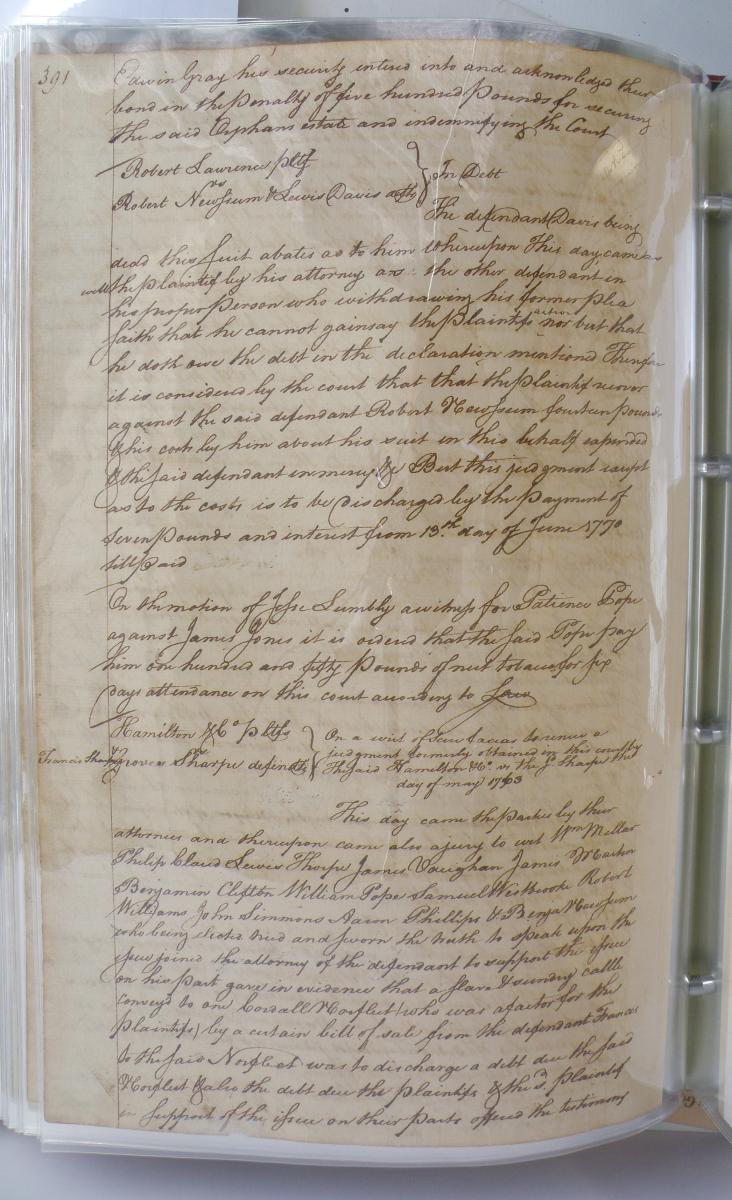 391
Edwin Gray his security entered into and acknowledged their
bond in the Penalty of five hundred Pounds for securing
the said Orphans estate and indemnifying the Court
Robert Lawrence pltf
vs
Robert Newsum & Lewis Davis defts
In Debt
The defendant Davis being
dead this suit abates as to him Whereupon This day came as
well the plaintif by his attorney as the other defendant in
his proper person who withdrawing his former plea
saith that he cannot gainsay the plaintifs action nor but that
he doth owe the debt in the declaration mentiond Therefore
it is considered by the court that that the plaintif recover
against the said defendant Robert Newsum fourteen pounds
& his costs by him about his suit in this behalf expended
& the said defendant in mercy &c But this judgment except
as to the costs is to be discharged by the payment of
seven pounds and interest from 13th day of June 1770
till paid
On the motion of Jesse Lumbly a witness for Patience Pope
against James Jones it is ordered that the said Pope pay
him one hundred and fifty Pounds of net tobacco for six
days attendance on this court according to Law
Hamilton & Co pltfs
vs
Francis Sharp
Groves Sharpe defendts
On a writ of Scire facias to renew a
judgment formerly obtained in this court by
The said Hamelton & Co. vs the sd Sharpe the
day of may 1763
This day came the parties by their
attornies and thereupon came also a jury to wit Wm Millar
Philip Claud Lewis Thorpe James Vaughan James
Benjamin Clifton William Pope Samuel Westbrooke Robert
Williams John Simmons Aaron Phillips & Benja Newsum
who being elected tried and sworn the truth to speak upon the
issue joined the attorney of the defendant to support the issue
on his part gave in evidence that a slave & sundry cattle
conveyd to one Cordall Norfleet (who was a factor for the
plaintifs) by a certain bill of sale from the defendant Francis
to the said Norfleet was to discharge a debt due the said
Norfleet & also the debt due the plaintifs & the sd. plaintif
in support of the issue on their parts offered the testimony